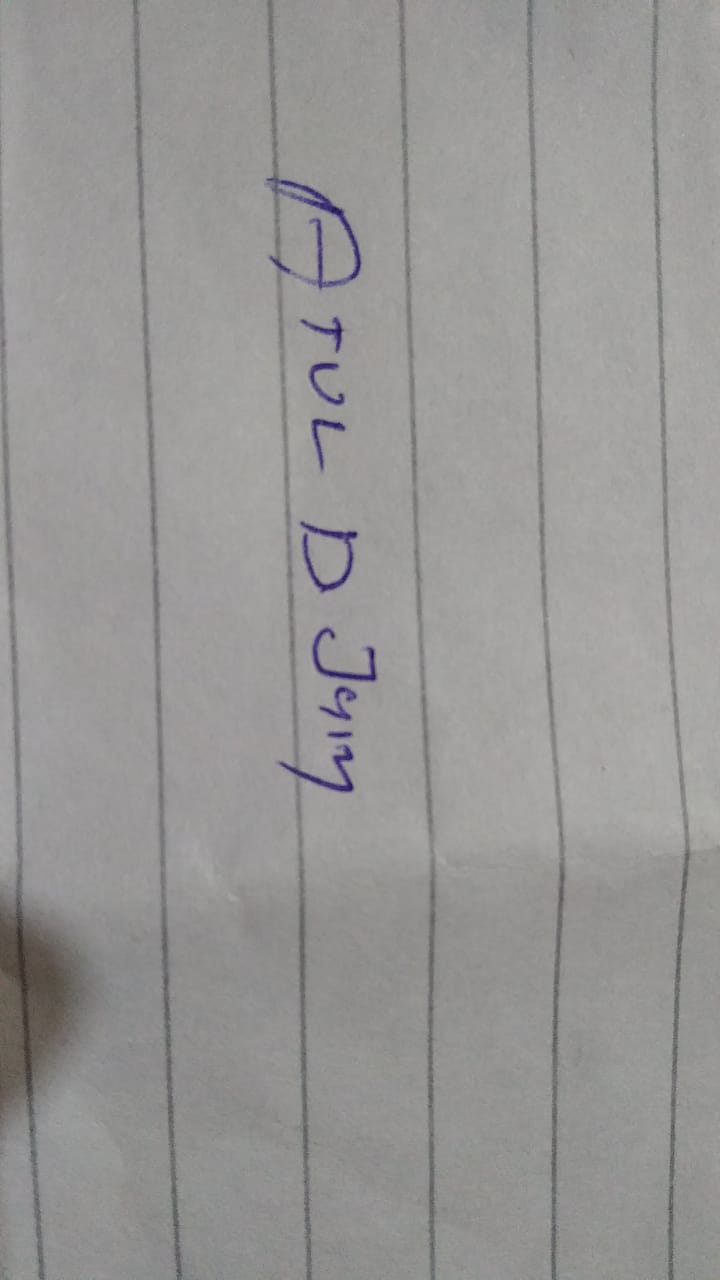 ATUL D Jain